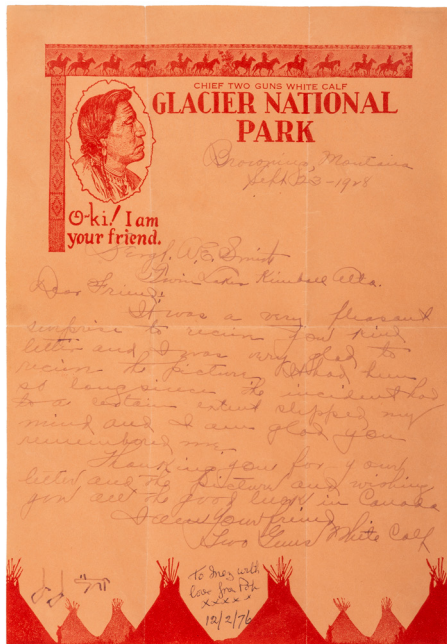 CHIEF TWO GUNS WHITE CALF
GLACIER NATIONAL
PARK
O-ki! I am
your friend.
Browning, Montana
Sept 23-1928
Sergt. A.E. Smith
Twin Lakes Kimball Alta.
Dear Friend:
It was a very pleasant
surprise to recive your kind
letter and I was very glad to
recive the picture. It had been
so long since the incident had
to a certain extent slipped my
mind and I am glad you
remembered me.
Thanking you for your
letter and the picture and wishing
you all the good luck in Canada
I am Your friend
Two Guns White Calf
To Inez with
love from Pop
xxxxx
12/2/76